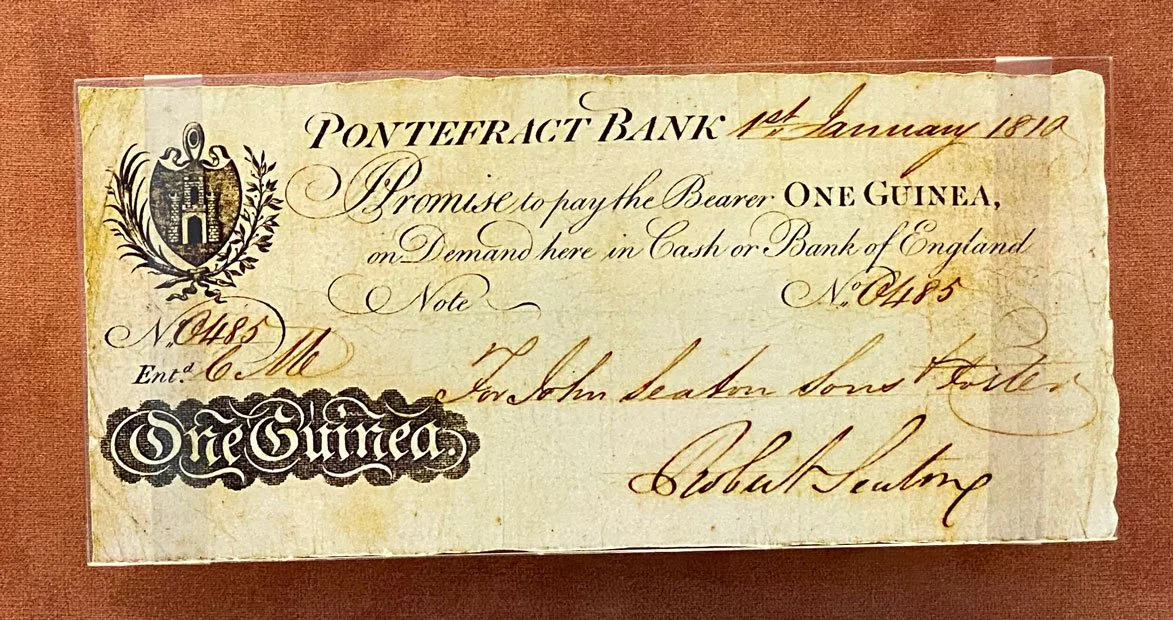 PONTEFRACT BANK 1st. January 1810
I Promise to pay the Bearer ONE GUINEA,
on Demand here in Cash or Bank of England
Note No. C485
No. C485
Entd. C M
For John Seaton Sons & Foster
One Guinea.
Robert Seaton